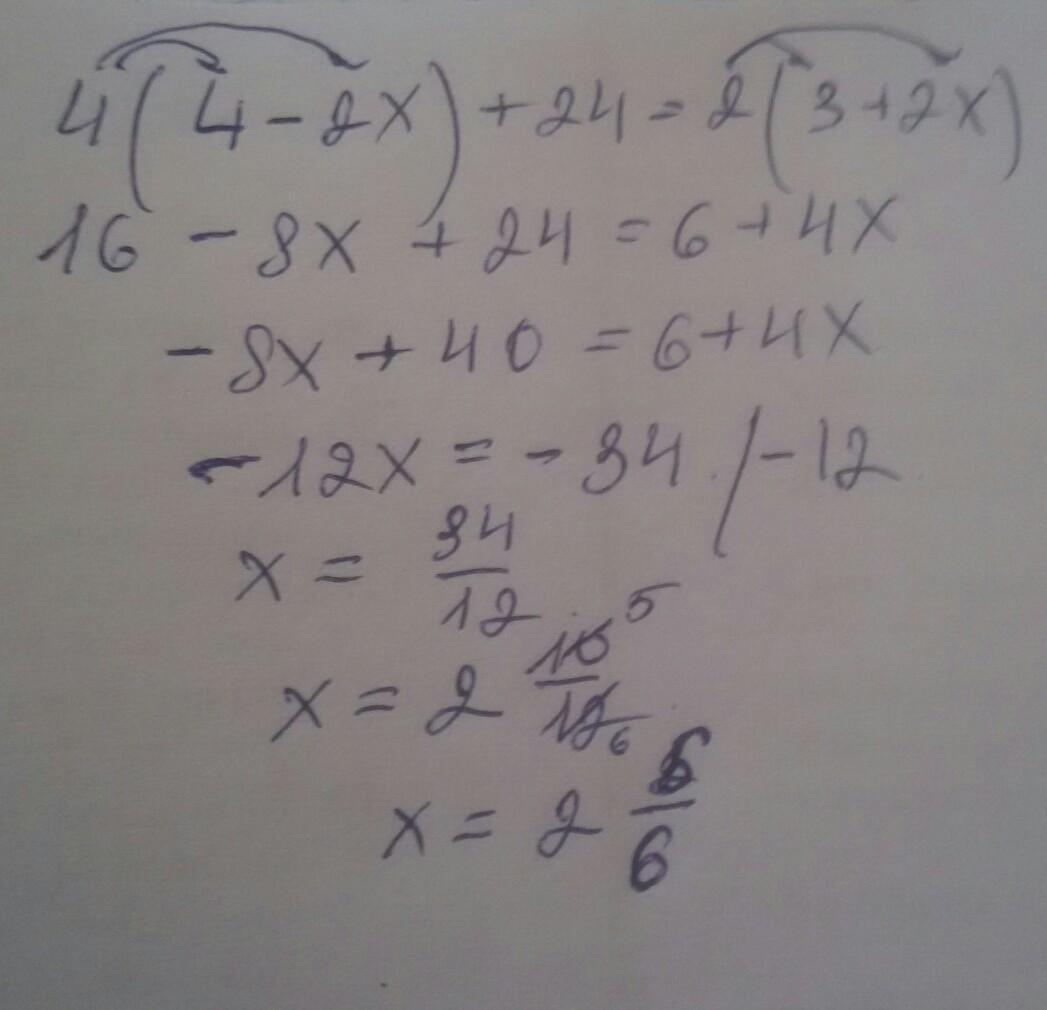 4(4-2x)+24=2(3+2x)
16-8x+24=6+4x
-8x+40=6+4x
-12x=-34 /-12
x=34/12
x=2 10/12 5/6
x=2 5/6